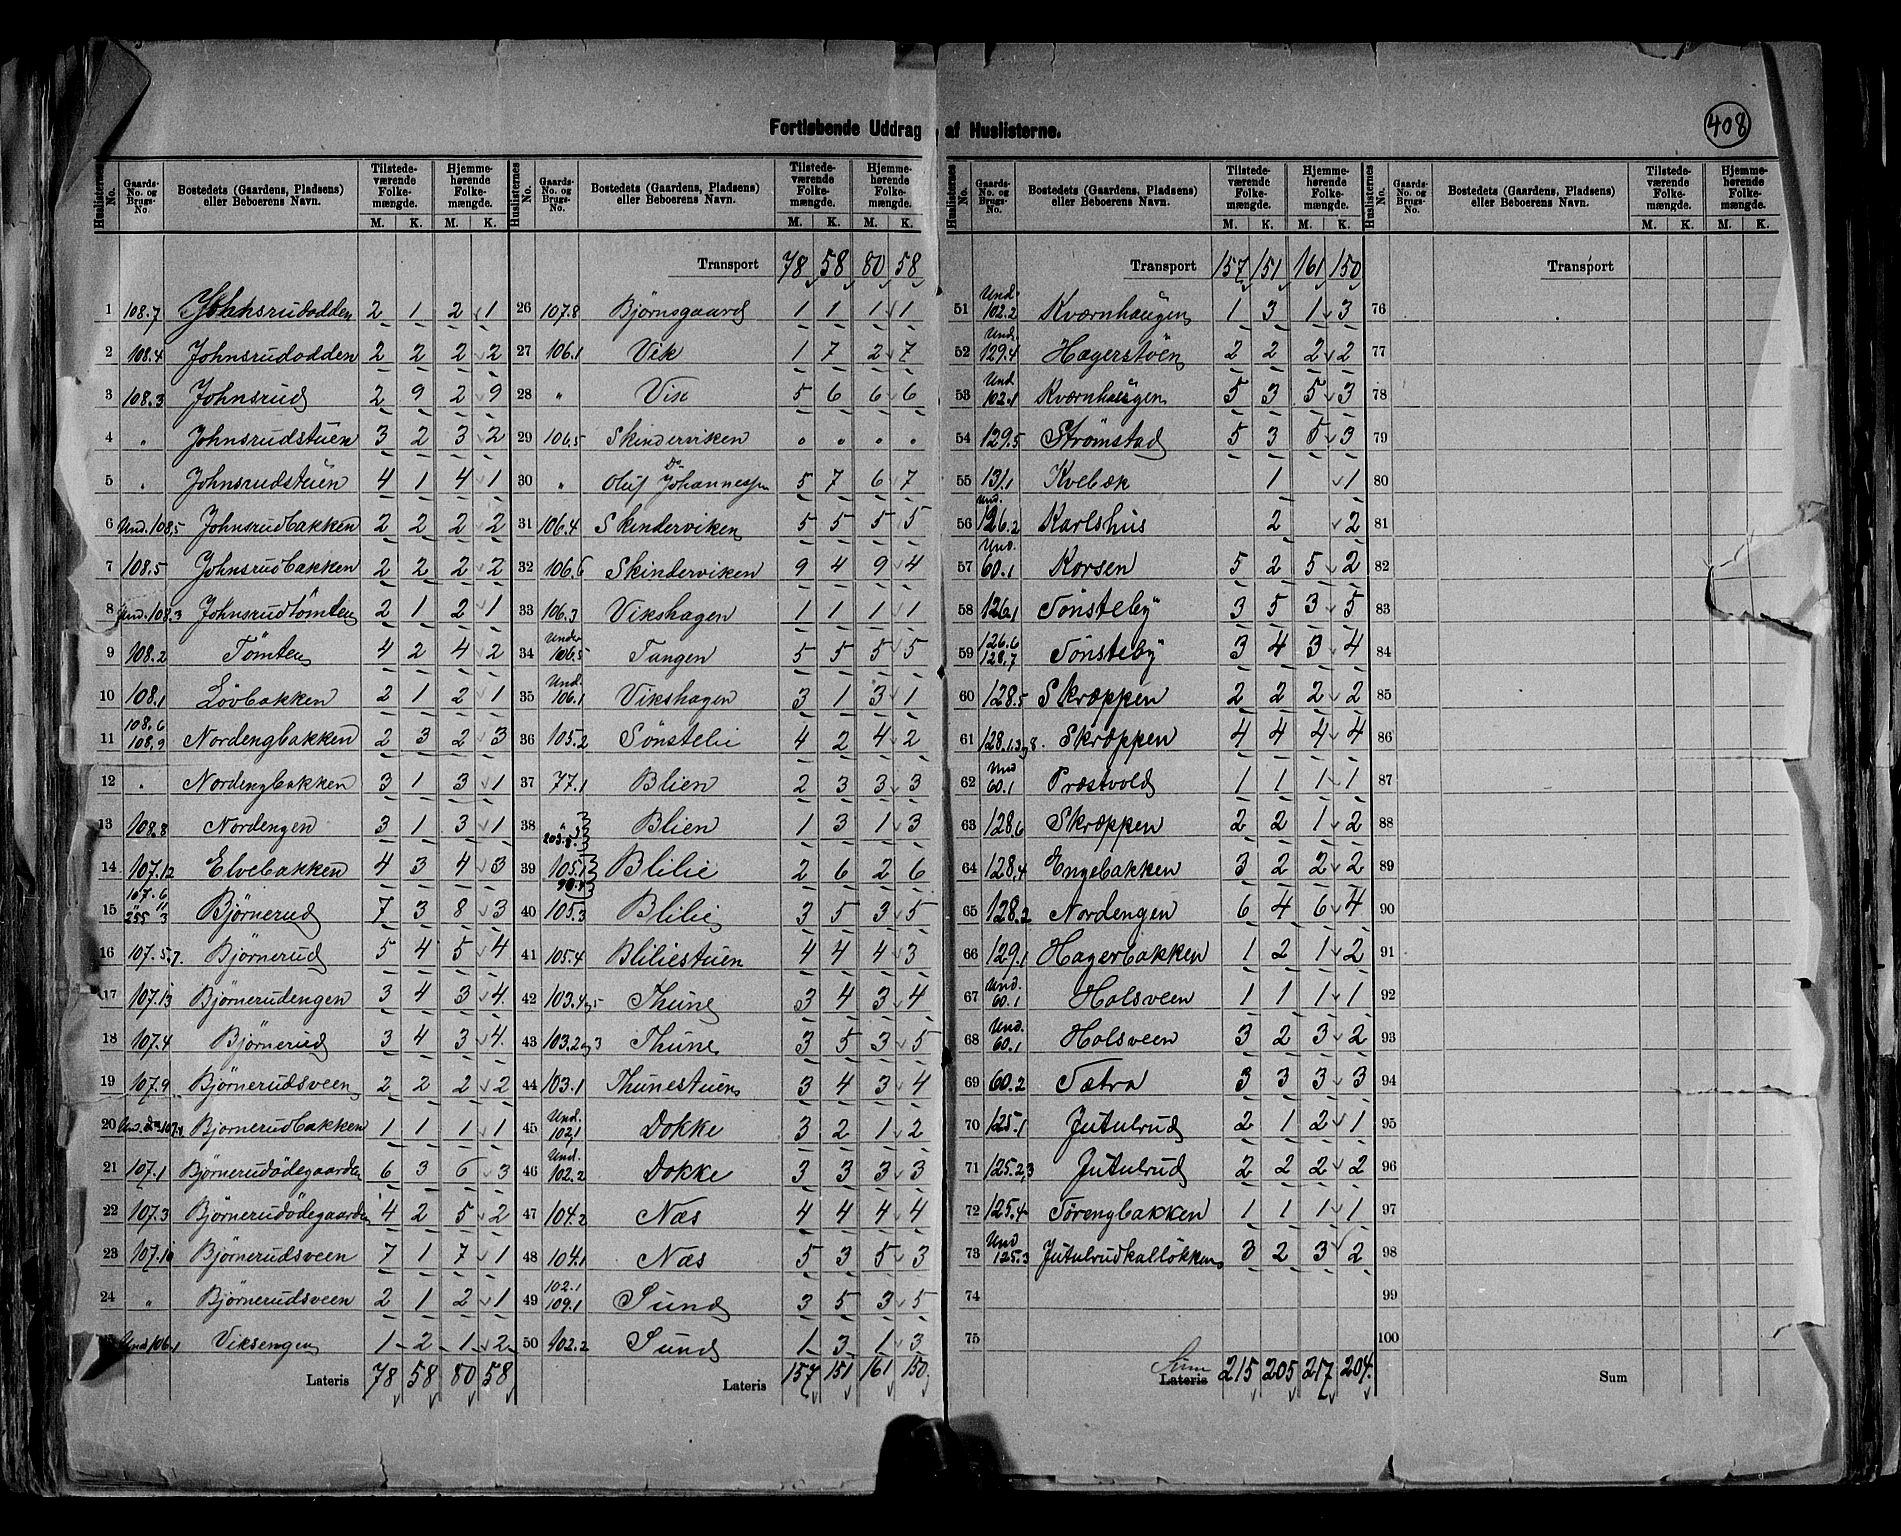 408
Fortløbende Uddrag af Huslisterne.
Huslisternes No. Gaards-No. og Brugs-No. Bostedets (Gaardens, Pladsens) eller Beboerens Navn. Tilstede-værende Folke-mængde. M. K. Hjemme-hørende Folke-mængde. M. K.
1 108.7 Johnsrudodden 2 1 2 1
2 108.4 Johnsrudodden 2 2 2 2
3 108.3 Johnsrud 2 9 2 9
4 " Johnsrudstuen 3 2 3 2
5 " Johnsrudstuen 4 1 4 1
6 Und. 108.5 Johnsrudbakken 2 2 2 2
7 108.5 Johnsrudbakken 2 2 2 2
8 Und. 108.3 Johnsrudtomten 2 1 2 1
9 108.2 Tomten 4 2 4 2
10 108.1 Lövbakken 2 1 2 1
11 108.6 108.9 Nordengbakken 2 3 2 3
12 " Nordengbakken 3 1 3 1
13 108.8 Nordengen 3 1 3 1
14 107.12 Elvebakken 4 3 4 3
15 107.6 " 11 255 3 Bjørnerud 7 3 8 3
16 107.5.7. Bjørnerud 5 4 5 4
17 107.13 Bjørnerudengen 3 4 3 4
18 107.4 Bjørnerud 3 4 3 4
19 107.9 Bjørnerudsveen 2 2 2 2
20 Bjørnerudbakken 1 1 1 1
21 107.1 Bjørnerudödegaarden 6 3 6 3
22 107.3 Bjørnerudödegaarden 4 2 5 2
23 107.10 Bjørnerudsveen 7 1 7 1
24 " Bjørnerudsveen 2 1 2 1
Und 106.1 Viksengen 1 2 1 2
Lateris 78 58 80 58
Huslisternes No. Gaards-No. og Brugs-No. Bostedets (Gaardens, Pladsens) eller Beboerens Navn. Tilstede-værende Folke-mængde. M. K. Hjemme-hørende Folke-mængde. M. K.
Transport 78 58 80 58
26 107.8 Bjørnsgaard 1 1 1 1
27 106.1 Vik 1 7 2 7
28 " Vik 5 6 6 6
29 106.5 Skinderviken " " " "
30 " Do Oluf Johannessen 5 7 6 7
31 106.4 Skinderviken 5 5 5 5
32 106.6 Skinderviken 9 4 9 4
33 106.3 Vikshagen 1 1 1 1
34 Under 106.5 Tangen 5 5 5 5
35 Und. 106.1 Vikshagen 3 1 3 1
36 105.2 Sönstebi 4 2 4 2
37 77.1 Blien 2 3 3 3
38 " Blien 1 3 1 3
39 105.1 Blilie 2 6 2 6
40 105.3 Blilie 3 5 3 5
41 105.4 Bliliestuen 4 4 4 3
42 103.4 og 5 Thune 3 4 3 4
43 103.2 og 3 Thune 3 5 3 5
44 103.1 Thunestuen 3 4 3 4
45 Und. 102.1 Dokke 3 2 1 2
46 Und. 102.2 Dokke 3 3 3 3
47 104.2 Næs 4 4 4 4
48 104.1 Næs 5 3 5 3
49 102.1 109.1 Sund 3 5 3 5
50 102.2 Sund 1 3 1 3
Lateris 157 151 161 150
Huslisternes No. Gaards-No. og Brugs-No. Bostedets (Gaardens, Pladsens) eller Beboerens Navn. Tilstede-værende Folke-mængde. M. K. Hjemme-hørende Folke-mængde. M. K.
Transport 157 151 161 150
51 Und. 102.2 Kværnhaugen 1 3 1 3
52 Und. 129.4 Hagerstøen 2 2 2 2
53 Und 102.1 Kværnhaugen 5 3 5 3
54 129.5 Strömstad 5 3 5 3
55 131.1 Kvebæk 1 1
56 Und. 126.2 Karlshus 2 2
57 Und. 60.1 Korsen 5 2 5 2
58 126.1 Sönsteby 3 5 3 5
59 126.6 128.7 Sönsteby 3 4 3 4
60 128.5 Skræppen 2 2 2 2
61 128.1.3 og 8. Skræppen 4 4 4 4
62 Und 60.1 Præstvold 1 1 1 1
63 128.6 Skræppen 2 2 1 2
64 128.4 Engebakken 3 2 2 2
65 128.2 Nordengen 6 4 6 4
66 129.1 Hagerbakken 1 2 1 2
67 Und. 60.1 Holsveen 1 1 1 1
68 Und. 60.1 Holsveen 3 2 3 2
69 60.2 Sætra 3 3 3 3
70 125.1 Jutulrud 2 1 2 1
71 125.2,3 Jutulrud 2 2 2 2
72 125.4 Sörengbakken 1 1 1 1
73 Und 125.3 Jutulrudkalløkken 3 2 3 2
74
75
Sum Lateris 215 205 217 204.
Huslisternes No. Gaards-No. og Brugs-No. Bostedets (Gaardens, Pladsens) eller Beboerens Navn. Tilstede-værende Folke-mængde. M. K. Hjemme-hørende Folke-mængde. M. K.
Transport
76
77
78
79
80
81
82
83
84
85
86
87
88
89
90
91
92
93
94
95
96
97
98
99
100
Sum